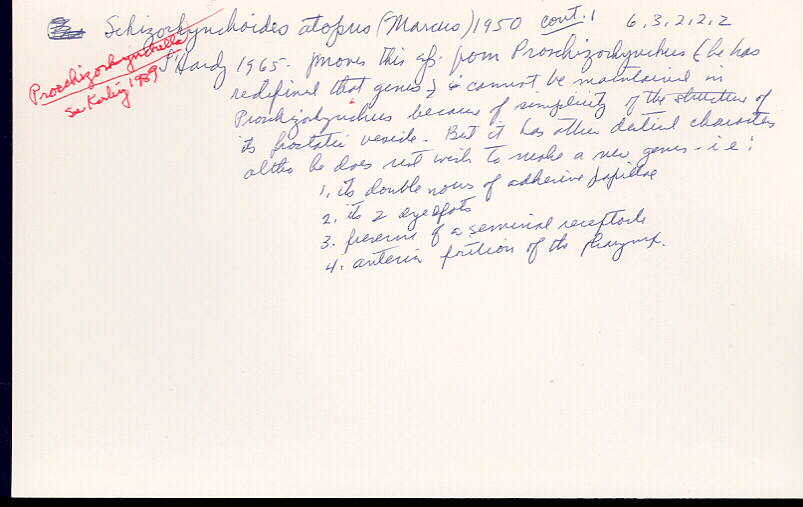 Schizorhynchoides atopus (Marcus) 1950 cont. 1 6, 3, 2, 2, 2
Proschizorhynchella
see Karling 1989
L'Hardy 1965 - moves this sp. from Proschizorhynchus (he has
redefined that genus) & cannot be maintained in
Proschizorhynchus because of simplicity of the structure of
its prostatic vesicle. But it has other distinct characters
altho he does not wish to make a new genus - i.e:
1. its double rows of adhesive papillae
2. its 2 eyespots
3. presence of a seminal receptacle
4. anterior position of the pharynx.